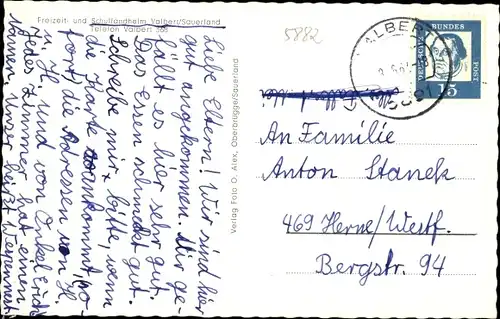 Freizeit- und Schullandheim Valbert/Sauerland
Telefon Valbert 368
Liebe Eltern! Wir sind hier
gut angekommen. Mir ge-
fällt es hier sehr gut.
Das Essen schmeckt gut.
Schreibe mir, bitte, wenn
die Karte ankommt, so-
fort, die Adressen von H.
u. H und von Onkel Erich
Jedes Zimmer hat einen
Namen unser heißt
Verlag Foto O. Alex, Oberbrügge/Sauerland
5882
VALBERT
5881
BUNDES
POST
15
An Familie
Anton Stanek
469 Herne/Westf.
Bergstr. 94